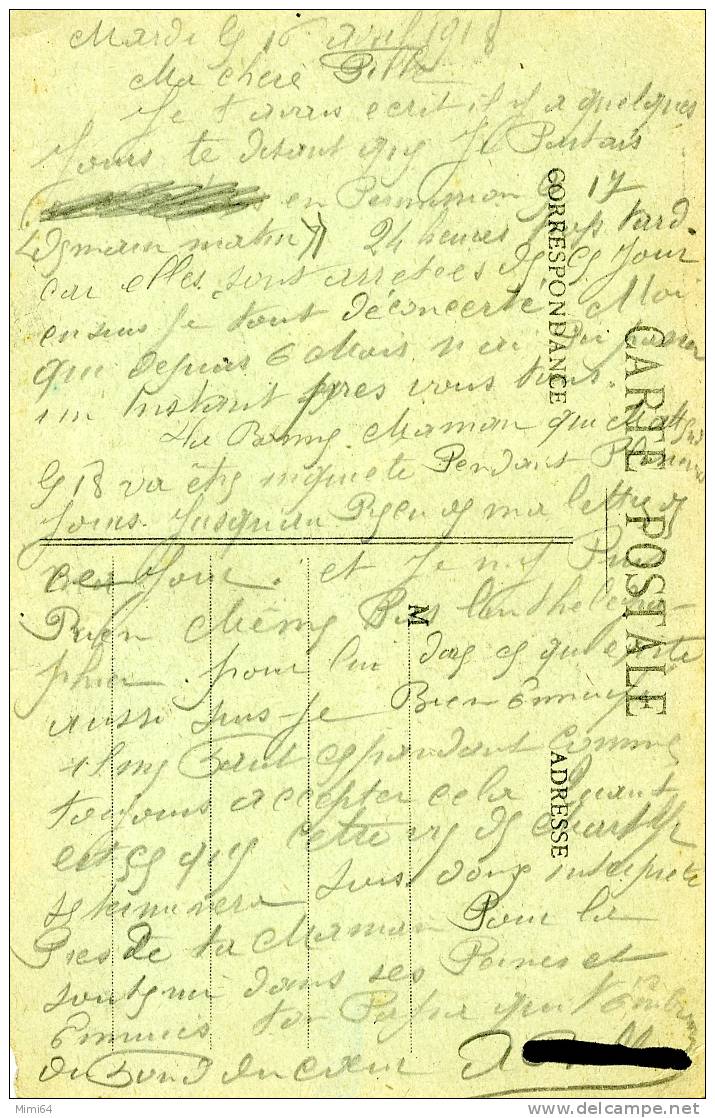 Mardi le 16 avril 1918
Ma chere
Je t'avais ecrit il y a quelques
Jours te disant que Je Partais
en Permission le 17
demain matin 24 heures Plus tard
car elles sont arretées de ce Jour
en suis Je tout déconcerté. Moi
que depuis 6 Mois n'ai Pu passer
un Instant Pres vous tous.
La Bonne Maman que M'attend
le 18 va être inquiete Pendant Plusieurs
Jours Jusqu'au Recu de ma lettre de
ce Jour. et Je n'y Puis
Rien Même Pas lui thelegra-
phier pour lui dire ce qui existe
aussi suis-Je Bien Ennuyé
il me Faut cependant comme
toujours accepter cela Quant
est ce que cette vie de
se terminera sois donc interprete
Pres de ta Maman Pour la
soutenir dans ses Peines et
Ennuis ton Papa qui t'embrasse
du Fond du cœur
CARTE POSTALE
CORRESPONDANCE
ADRESSE
M
Mimi64
delcampe.net